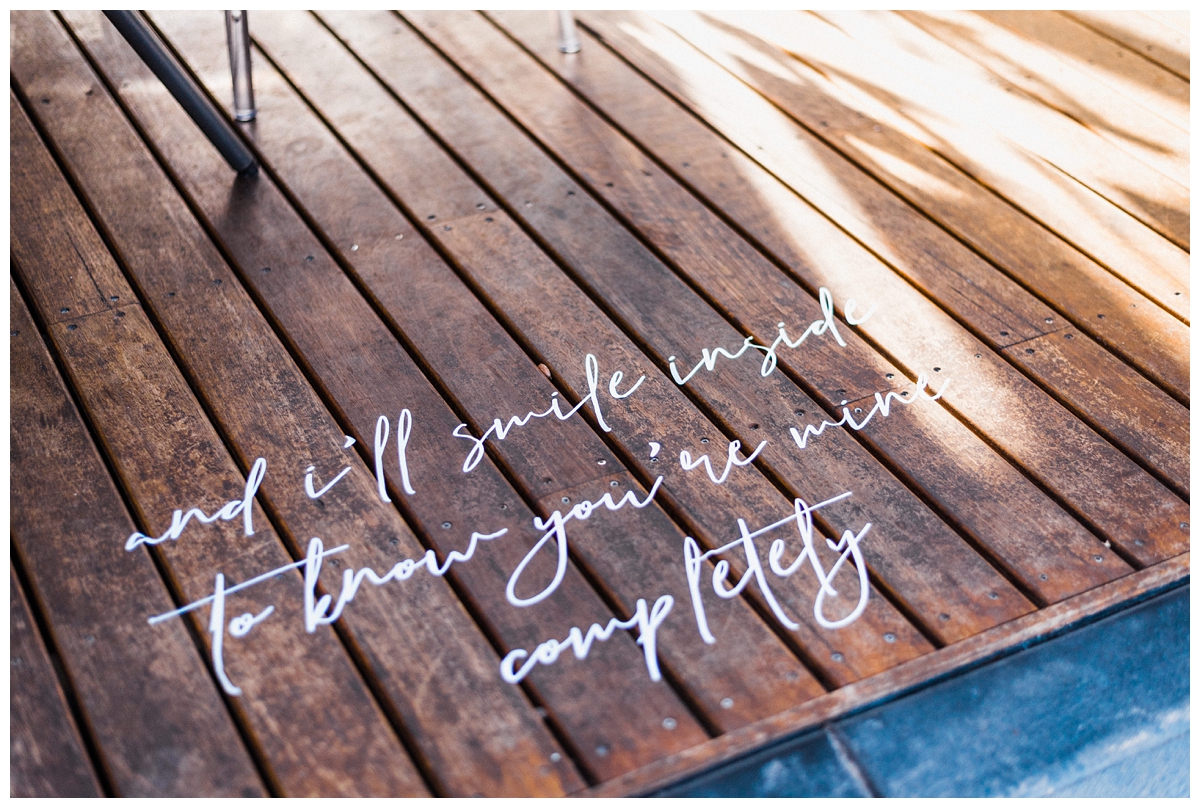 and i'll smile inside
to know you're mine
completely